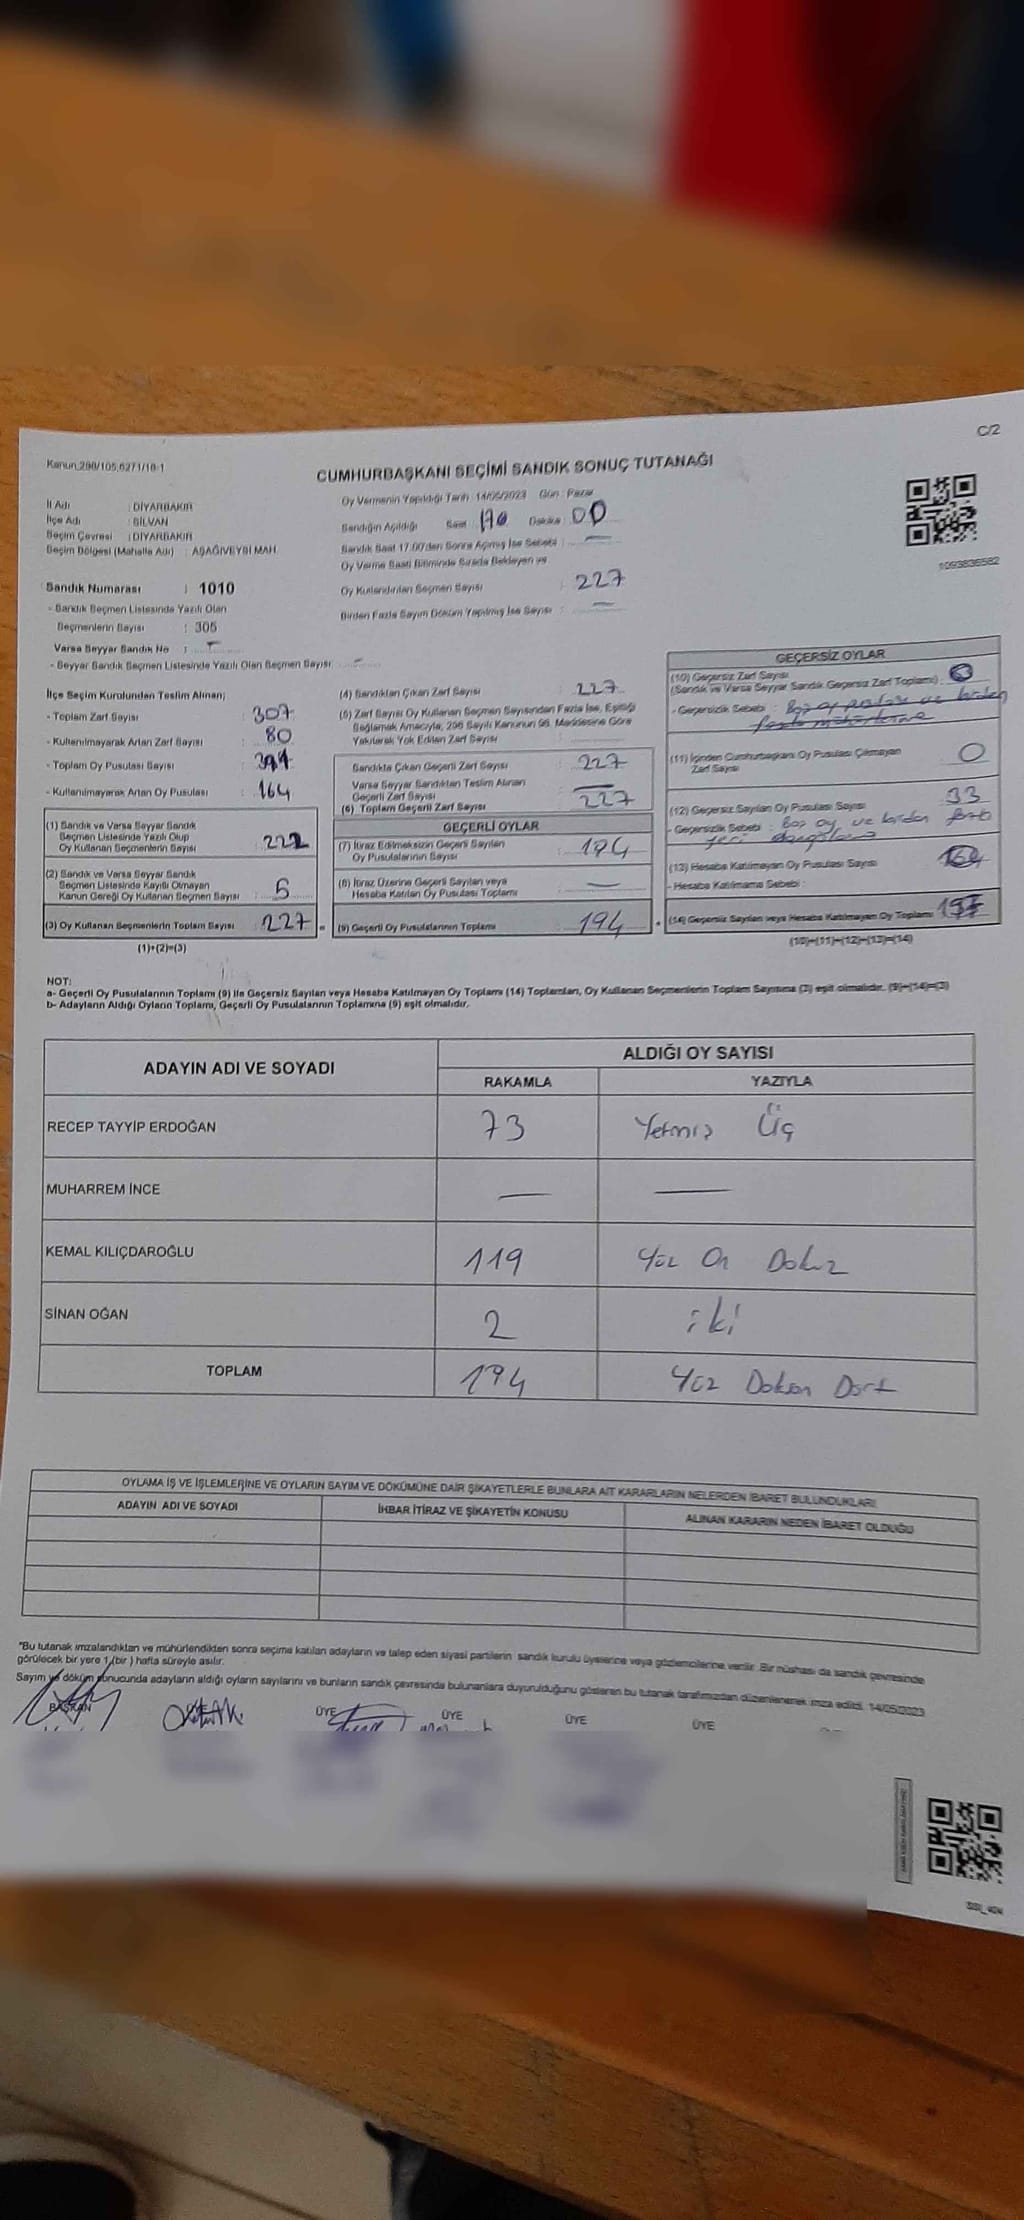 C/2
Kanun:298/105,6271/18-1
CUMHURBAŞKANI SEÇİMİ SANDIK SONUÇ TUTANAĞI
İl Adı : DİYARBAKIR
İlçe Adı : SİLVAN
Seçim Çevresi : DİYARBAKIR
Seçim Bölgesi (Mahalle Adı) : AŞAĞIVEYSİ MAH.
Oy Vermenin Yapıldığı Tarih : 14/05/2023 Gün : Pazar
Sandığın Açıldığı Saat Dakika : 00
Sandık Saat 17:00'den Sonra Açılmış İse Sebebi : —
Oy Verme Saati Bitiminde Sırada Bekleyen ve
Oy Kullandırılan Seçmen Sayısı : 227
Birden Fazla Sayım Döküm Yapılmış İse Sayısı : —
1093836582
Sandık Numarası : 1010
- Sandık Seçmen Listesinde Yazılı Olan
Seçmenlerin Sayısı : 305
Varsa Seyyar Sandık No :
- Seyyar Sandık Seçmen Listesinde Yazılı Olan Seçmen Sayısı: —
İlçe Seçim Kurulundan Teslim Alınan;
- Toplam Zarf Sayısı : 307
- Kullanılmayarak Artan Zarf Sayısı : 80
- Toplam Oy Pusulası Sayısı :
- Kullanılmayarak Artan Oy Pusulası : 164
(1) Sandık ve Varsa Seyyar Sandık
Seçmen Listesinde Yazılı Olup
Oy Kullanan Seçmenlerin Sayısı : 222
(2) Sandık ve Varsa Seyyar Sandık
Seçmen Listesinde Kayıtlı Olmayan
Kanun Gereği Oy Kullanan Seçmen Sayısı : 5
(3) Oy Kullanan Seçmenlerin Toplam Sayısı : 227
(1)+(2)=(3)
(4) Sandıktan Çıkan Zarf Sayısı : 227
(5) Zarf Sayısı Oy Kullanan Seçmen Sayısından Fazla İse, Eşitliği
Sağlamak Amacıyla, 298 Sayılı Kanunun 98. Maddesine Göre
Yakılarak Yok Edilen Zarf Sayısı :
Sandıkta Çıkan Geçerli Zarf Sayısı : 227
Varsa Seyyar Sandıktan Teslim Alınan
Geçerli Zarf Sayısı : —
(6) Toplam Geçerli Zarf Sayısı : 227
GEÇERLİ OYLAR
(7) İtiraz Edilmeksizin Geçerli Sayılan
Oy Pusulalarının Sayısı : 194
(8) İtiraz Üzerine Geçerli Sayılan veya
Hesaba Katılan Oy Pusulası Toplamı : —
(9) Geçerli Oy Pusulalarının Toplamı : 194
GEÇERSİZ OYLAR
(10) Geçersiz Zarf Sayısı
(Sandık ve Varsa Seyyar Sandık Geçersiz Zarf Toplamı) :
- Geçersizlik Sebebi : Boş oy pusulası ve birden
fazla mühürleme
(11) İçinden Cumhurbaşkanı Oy Pusulası Çıkmayan
Zarf Sayısı 0
(12) Geçersiz Sayılan Oy Pusulası Sayısı : 33
- Geçersizlik Sebebi : Boş oy ve birden fazla
yeri
(13) Hesaba Katılmayan Oy Pusulası Sayısı :
- Hesaba Katılmama Sebebi :
(14) Geçersiz Sayılan veya Hesaba Katılmayan Oy Toplamı :
(10)+(11)+(12)+(13)=(14)
NOT:
a- Geçerli Oy Pusulalarının Toplamı (9) ile Geçersiz Sayılan veya Hesaba Katılmayan Oy Toplamı (14) Toplamları, Oy Kullanan Seçmenlerin Toplam Sayısına (3) eşit olmalıdır. (9)+(14)=(3)
b- Adayların Aldığı Oyların Toplamı, Geçerli Oy Pusulalarının Toplamına (9) eşit olmalıdır.
ADAYIN ADI VE SOYADI
ALDIĞI OY SAYISI
RAKAMLA YAZIYLA
RECEP TAYYİP ERDOĞAN 73 Yetmiş Üç
MUHARREM İNCE — —
KEMAL KILIÇDAROĞLU 119 Yüz On Dokuz
SİNAN OĞAN 2 iki
TOPLAM 194 Yüz Doksan Dört
OYLAMA İŞ VE İŞLEMLERİNE VE OYLARIN SAYIM VE DÖKÜMÜNE DAİR ŞİKAYETLERLE BUNLARA AİT KARARLARIN NELERDEN İBARET BULUNDUKLARI
ADAYIN ADI VE SOYADI İHBAR İTİRAZ VE ŞİKAYETİN KONUSU ALINAN KARARIN NEDEN İBARET OLDUĞU
*Bu tutanak imzalandıktan ve mühürlendikten sonra seçime katılan adayların ve talep eden siyasi partilerin sandık kurulu üyelerine veya gözlemcilerine verilir. Bir nüshası da sandık çevresinde
görülecek bir yere 1 (bir) hafta süreyle asılır.
Sayım ve döküm sonucunda adayların aldığı oyların sayılarını ve bunların sandık çevresinde bulunanlara duyurulduğunu gösteren bu tutanak tarafımızdan düzenlenerek imza edildi. 14/05/2023
BAŞKAN ÜYE ÜYE ÜYE ÜYE